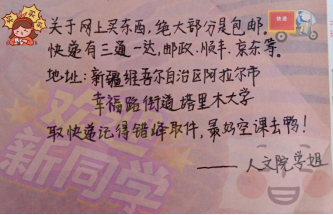 关于网上买东西,绝大部分是包邮.
快递有三通一达,邮政.顺丰.京东等。
地址:新疆维吾尔自治区阿拉尔市
幸福路街道塔里木大学
取快递记得错峰取件,最好空课去鸭!
——人文院学姐
欢迎
新同学